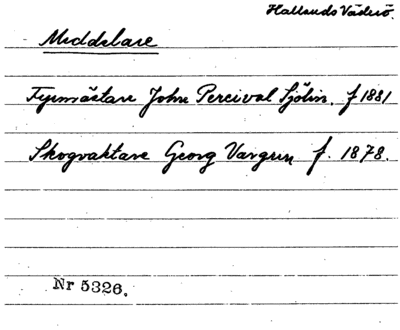 Hallands Väderö.
Meddelare
Fyrmästare John Percival Sjölin. f 1881
Skogvaktare Georg Vangrun f. 1878.
Nr 5326.